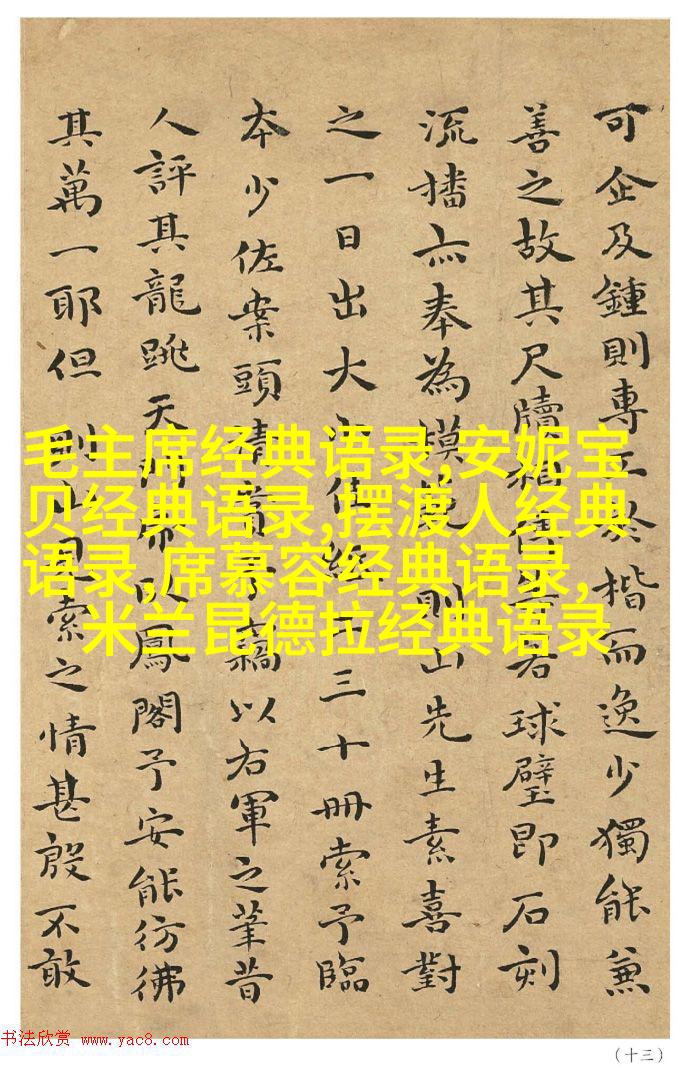 可企及鍾則專工於楷而逸少獨能兼
善之故其尺牘相傳若球璧即石刻
流播亦奉為模則山先生素喜對
之一日出大三十冊索予臨
本少佐案頭清賞予以右軍之筆昔
人評其龍跳天門臥鳳閣予安能彷彿
其萬一耶但則山索之情甚殷不敢
毛主席经典语录,安妮宝
贝经典语录,摆渡人经典
语录,席慕容经典语录,
米兰昆德拉经典语录
书法欣赏 www.yac8.com
（十三）